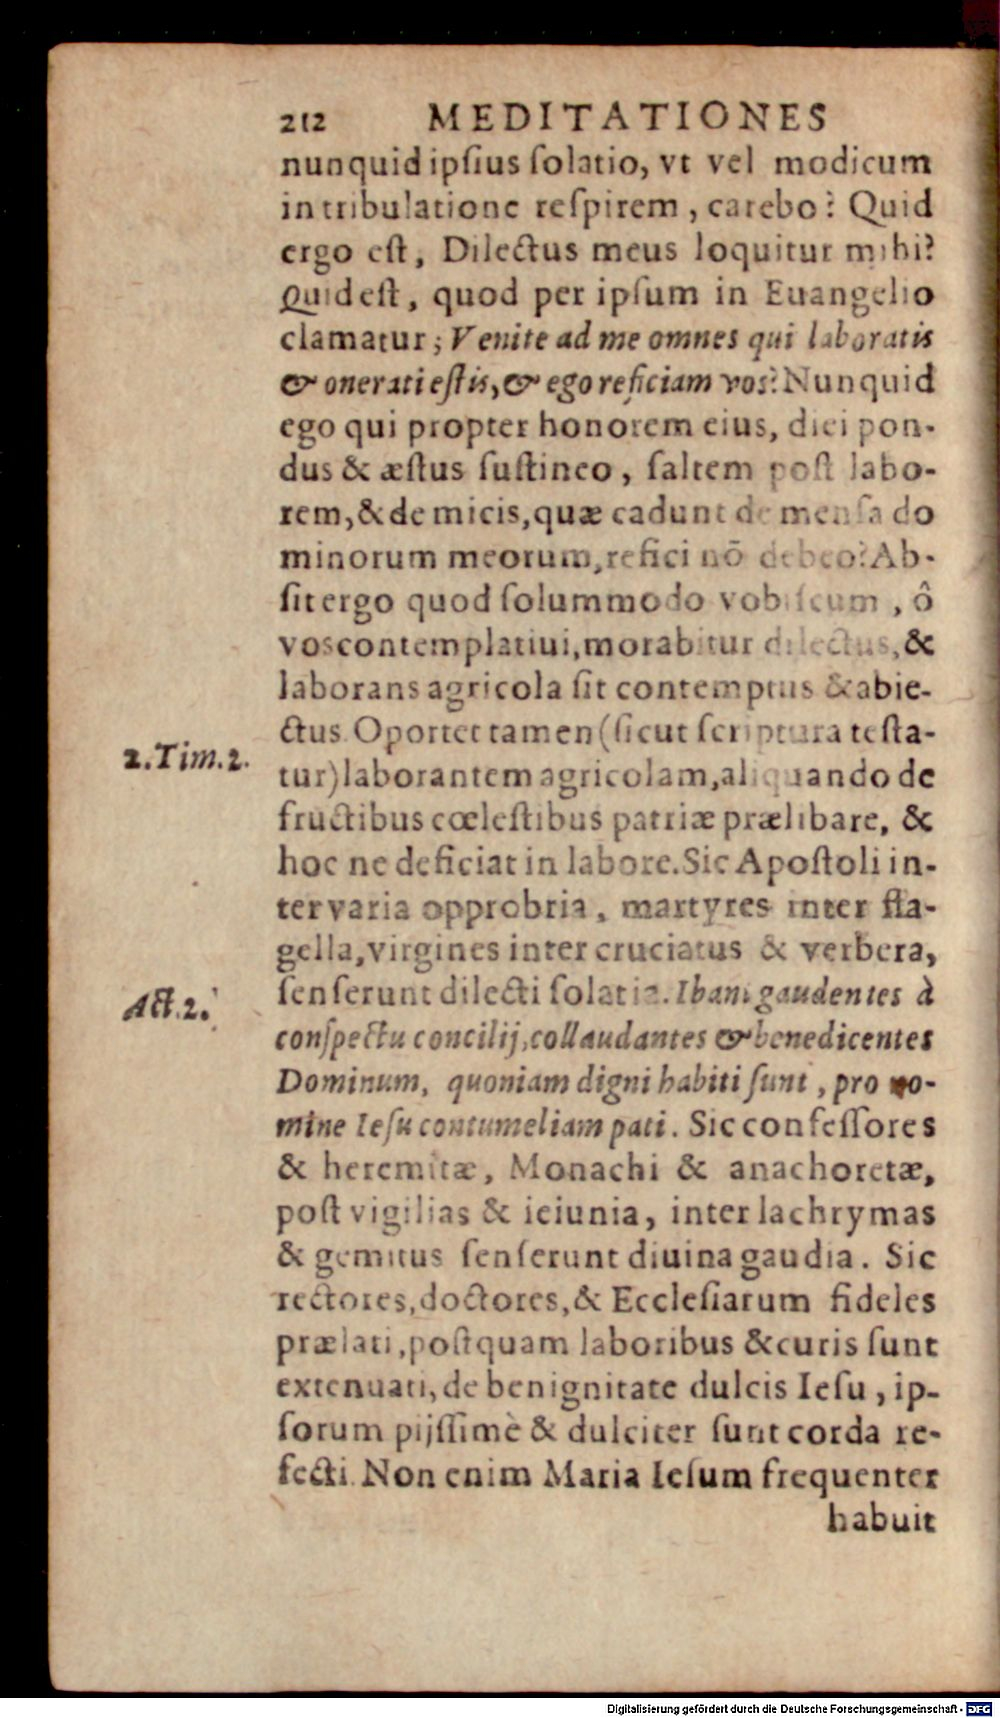 212 MEDITATIONES
nunquid ipſius ſolatio, vt vel modicum
in tribulatione reſpirem, carebo? Quid
ergo eſt, Dilectus meus loquitur mihi?
Quid eſt, quod per ipſum in Euangelio
clamatur; Venite ad me omnes qui laboratis
& onerati eſtis, & ego reficiam vos? Nunquid
ego qui propter honorem eius, diei pon-
dus & æſtus ſuſtineo, ſaltem poſt labo-
rem, & de micis, quæ cadunt de menſa do
minorum meorum, refici nō debeo? Ab-
ſit ergo quod ſolummodo vobiſcum, ô
vos contemplatiui, morabitur dilectus, &
laborans agricola ſit contemptus & abie-
ctus. Oportet tamen (ſicut ſcriptura teſta-
2. Tim. 2.
tur) laborantem agricolam, aliquando de
fructibus cœleſtibus patriæ prælibare, &
hoc ne deficiat in labore. Sic Apoſtoli in-
ter varia opprobria, martyres inter fla-
gella, virgines inter cruciatus & verbera,
ſenſerunt dilecti ſolatia. Ibant gaudentes à
Act. 2.
conſpectu concilij, collaudantes & benedicentes
Dominum, quoniam digni habiti ſunt, pro no-
mine Ieſu contumeliam pati. Sic confeſſores
& heremitæ, Monachi & anachoretæ,
poſt vigilias & ieiunia, inter lachrymas
& gemitus ſenſerunt diuina gaudia. Sic
rectores, doctores, & Eccleſiarum fideles
prælati, poſtquam laboribus & curis ſunt
extenuati, de benignitate dulcis Ieſu, ip-
ſorum pijſſimè & dulciter ſunt corda re-
fecti. Non enim Maria Ieſum frequenter
habuit
Digitalisierung gefördert durch die Deutsche Forschungsgemeinschaft - DFG